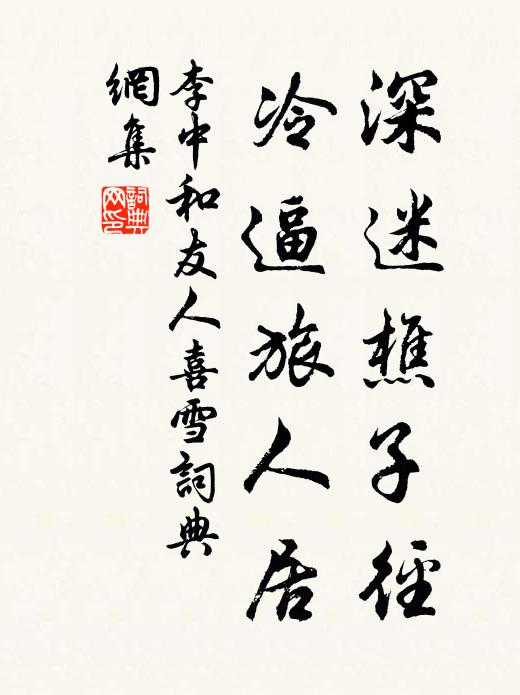 深迷樵子徑
冷逼旅人居
李中和友人喜雪詞典
網集
詞典
网印